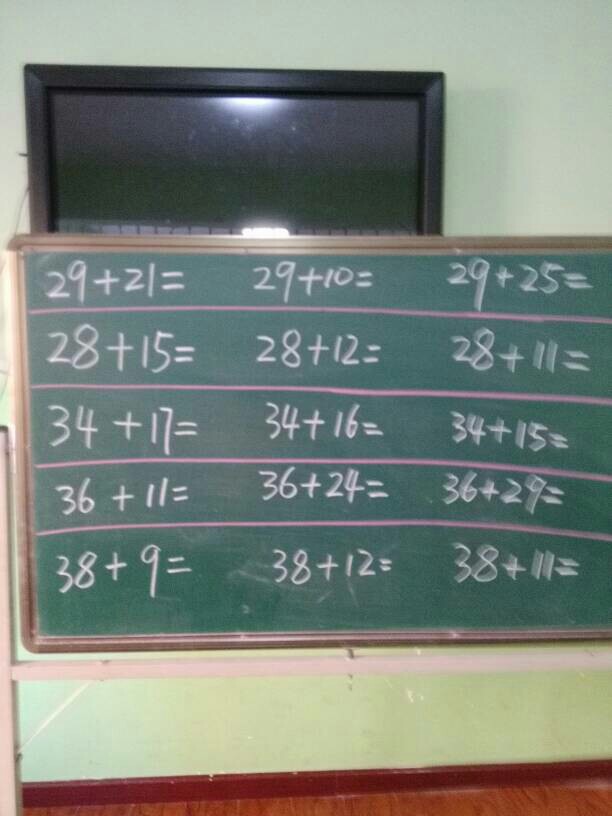 29+21= 29+10= 29+25=
28+15= 28+12= 28+11=
34+17= 34+16= 34+15=
36+11= 36+24= 36+29=
38+9= 38+12= 38+11=